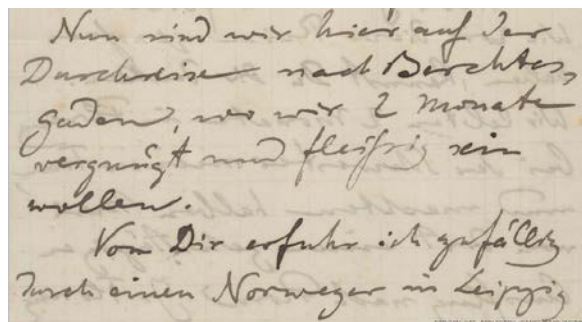 Nun sind wir hier auf der
Durchreise nach Berchtes,
gaden, wo wir 2 Monate
vergnügt und fleißig sein
wollen.
Von Dir erfuhr ich zufällig
durch einen Norweger in Leipzig